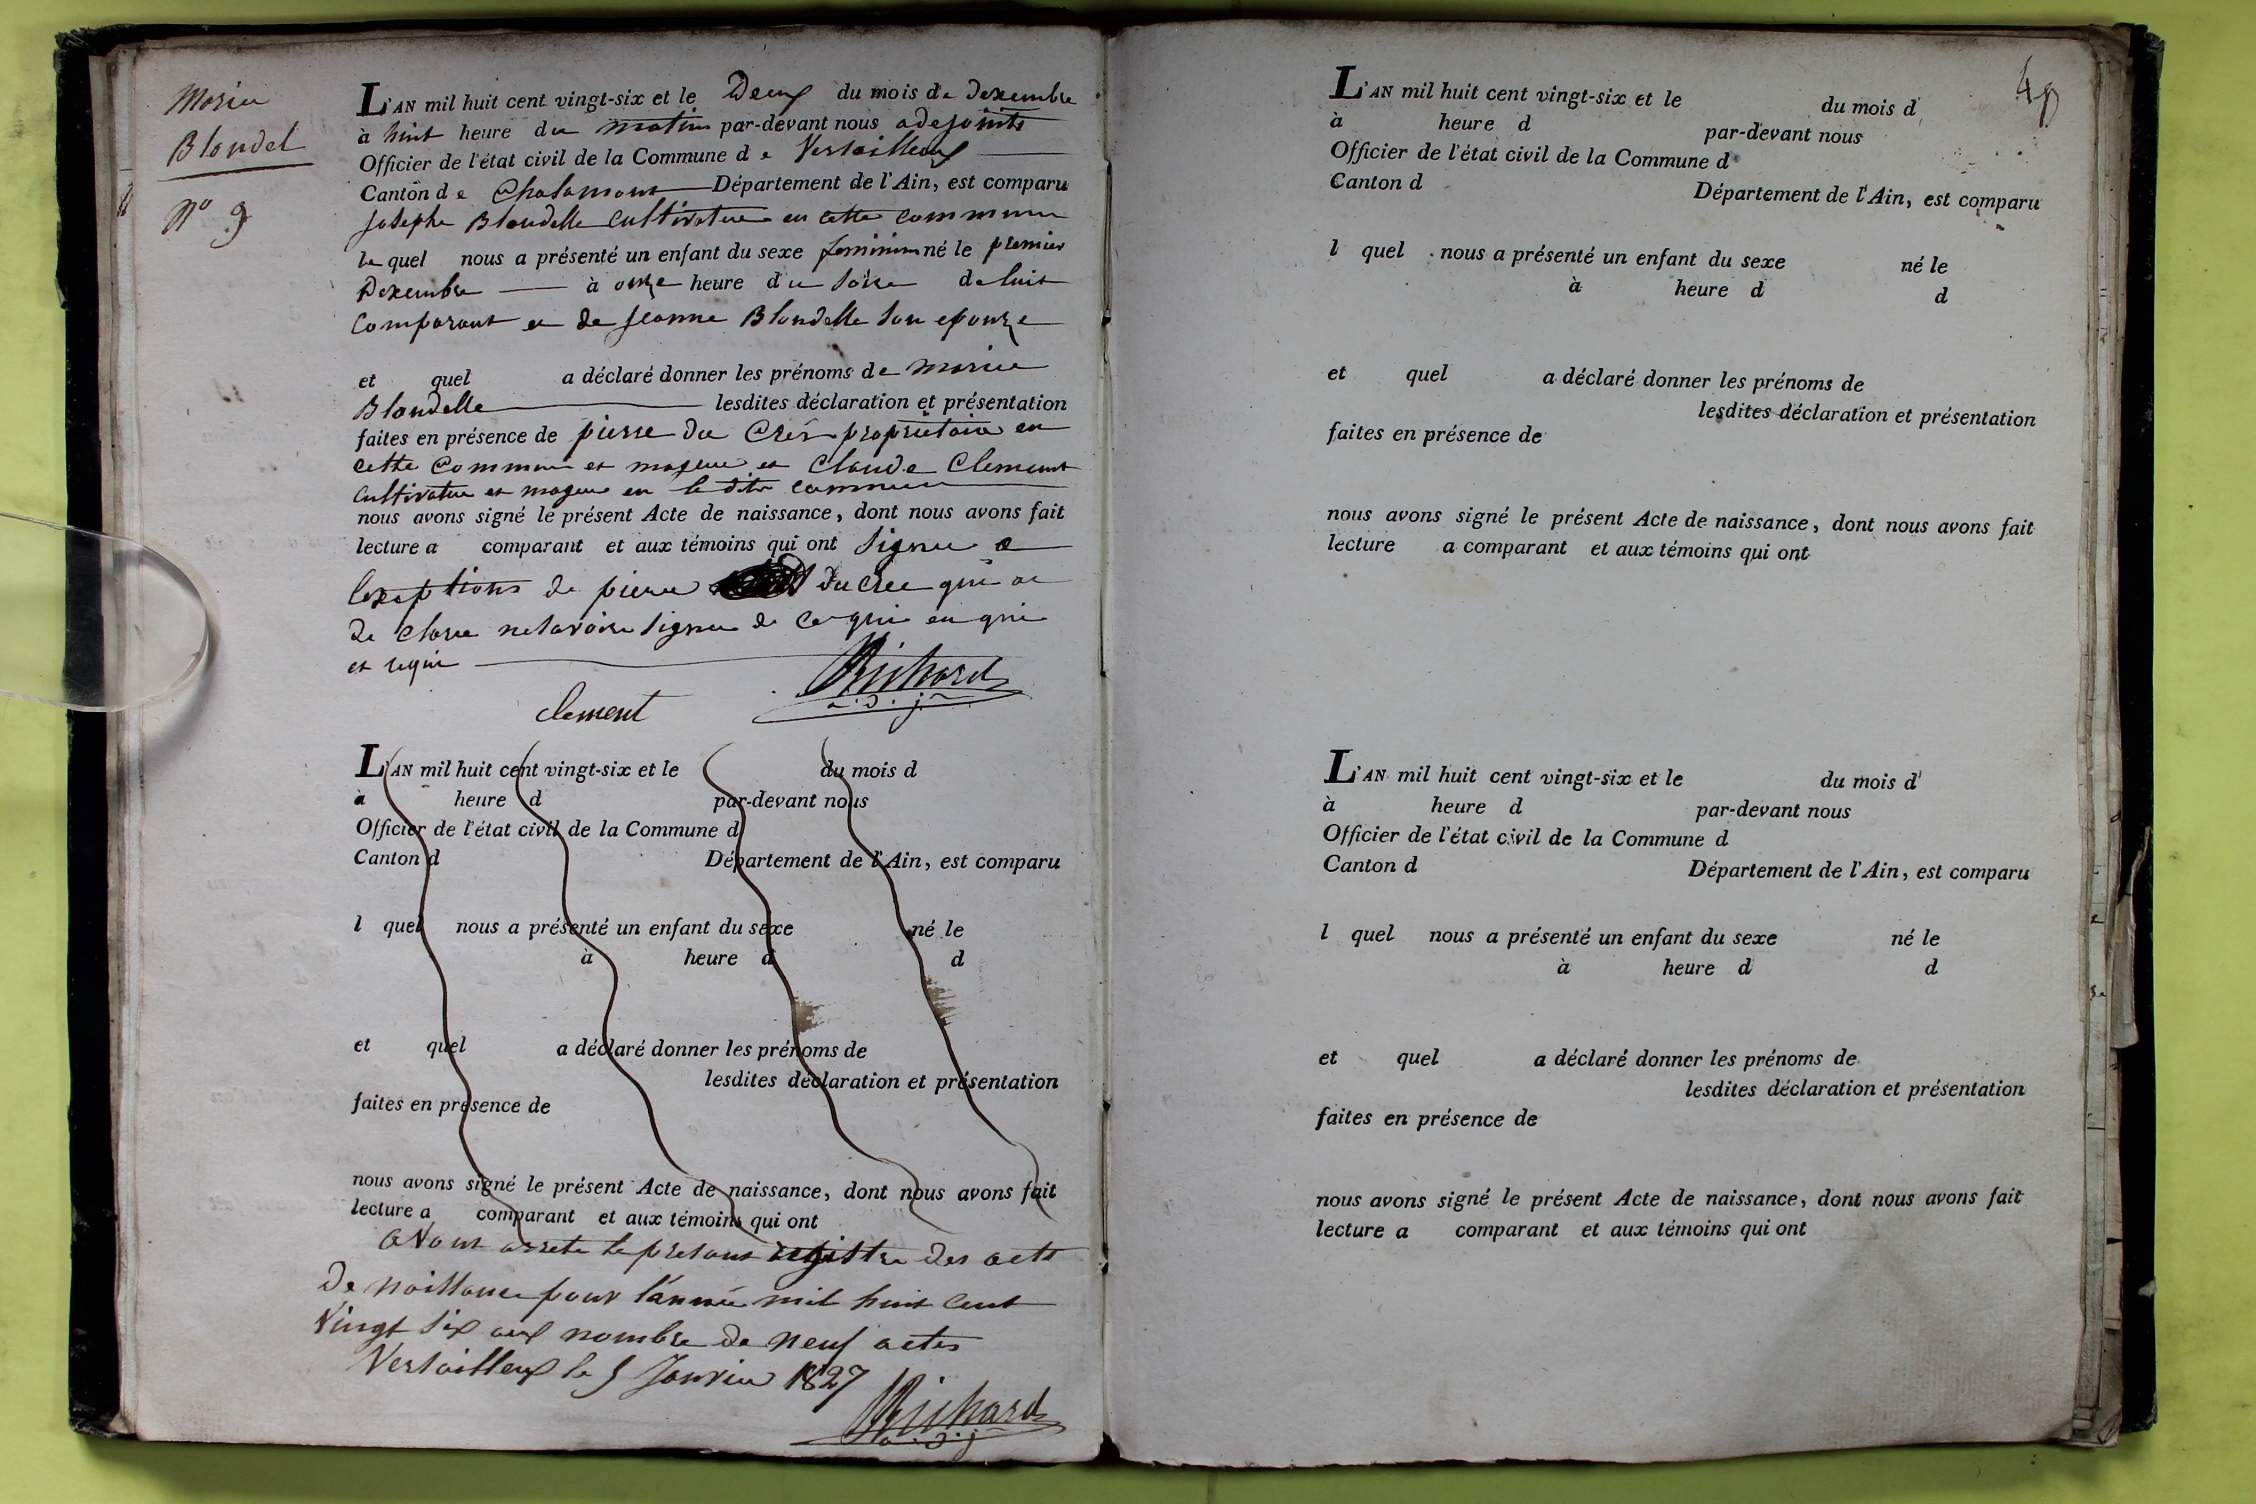 Morie
Blondel
N° 9
L'AN mil huit cent vingt-six et le Deux du mois de Dexembre
à huit heure du matin par-devant nous adejoints
Officier de l'état civil de la Commune de Versailleux
Canton de Chalamont Département de l'Ain, est comparu
Josephe Blondelle cultivateur en cette commune
le quel nous a présenté un enfant du sexe feminim né le premier
Dexembre à onze heure du soire de luit
comparant et de Jeanne Blondelle son epouze
et quel a déclaré donner les prénoms de morie
Blondelle lesdites déclaration et présentation
faites en présence de pierre du Cres propriétaire en
cette commune et majeur et Claude Clement
cultivateur et majeur en la dite commune
nous avons signé le présent Acte de naissance, dont nous avons fait
lecture a comparant et aux témoins qui ont signer a
lexeptions de pierre ducree qui a
de clarer ne savoire signer de ce qui en qui
et requi
Richard
a.d.j.
clement
L'AN mil huit cent vingt-six et le du mois d
à heure d par-devant nous
Officier de l'état civil de la Commune d
Canton d Département de l'Ain, est comparu
l quel nous a présenté un enfant du sexe né le
à heure d d
et quel a déclaré donner les prénoms de
lesdites déclaration et présentation
faites en présence de
nous avons signé le présent Acte de naissance, dont nous avons fait
lecture a comparant et aux témoins qui ont
avons arrete le presant registre des acts
de naissance pour l'année mil huit cent
vingt six aux nombre de neuf actes
Versailleux le 5 Janvier 1827
Richard
a.d.j
L'AN mil huit cent vingt-six et le du mois d
à heure d par-devant nous
Officier de l'état civil de la Commune d
Canton d Département de l'Ain, est comparu
l quel nous a présenté un enfant du sexe né le
à heure d d
et quel a déclaré donner les prénoms de
lesdites déclaration et présentation
faites en présence de
nous avons signé le présent Acte de naissance, dont nous avons fait
lecture a comparant et aux témoins qui ont
L'AN mil huit cent vingt-six et le du mois d
à heure d par-devant nous
Officier de l'état civil de la Commune d
Canton d Département de l'Ain, est comparu
l quel nous a présenté un enfant du sexe né le
à heure d d
et quel a déclaré donner les prénoms de
lesdites déclaration et présentation
faites en présence de
nous avons signé le présent Acte de naissance, dont nous avons fait
lecture a comparant et aux témoins qui ont